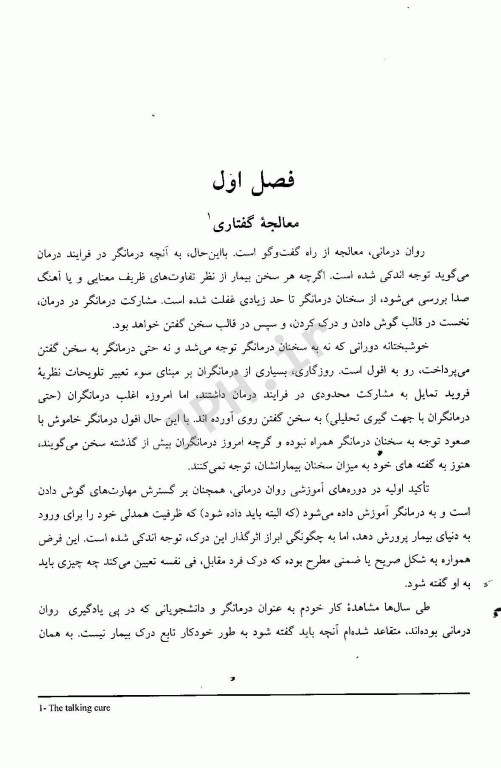 فصل اول
معالجهٔ گفتاری۱
روان درمانی، معالجه از راه گفت‌وگو است. بااین‌حال، به آنچه درمانگر در فرایند درمان
می‌گوید توجه اندکی شده است. اگرچه هر سخن بیمار از نظر تفاوت‌های ظریف معنایی و یا آهنگ
صدا بررسی می‌شود، از سخنان درمانگر تا حد زیادی غفلت شده است. مشارکت درمانگر در درمان،
نخست در قالب گوش دادن و درک کردن، و سپس در قالب سخن گفتن خواهد بود.
خوشبختانه دورانی که نه به سخنان درمانگر توجه می‌شد و نه حتی درمانگر به سخن گفتن
می‌پرداخت، رو به افول است. روزگاری، بسیاری از درمانگران بر مبنای سوء تعبیر تلویحات نظریهٔ
فروید تمایل به مشارکت محدودی در فرایند درمان داشتند، اما امروزه اغلب درمانگران (حتی
درمانگران با جهت گیری تحلیلی) به سخن گفتن روی آورده اند. با این حال افول درمانگر خاموش با
صعود توجه به سخنان درمانگر همراه نبوده و گرچه امروز درمانگران بیش از گذشته سخن می‌گویند،
هنوز به گفته های خود به میزان سخنان بیمارانشان، توجه نمی‌کنند.
تأکید اولیه در دوره‌های آموزشی روان درمانی، همچنان بر گسترش مهارت‌های گوش دادن
است و به درمانگر آموزش داده می‌شود (که البته باید داده شود) که ظرفیت همدلی خود را برای ورود
به دنیای بیمار پرورش دهد، اما به چگونگی ابراز اثرگذار این درک، توجه اندکی شده است. این فرض
همواره به شکل صریح یا ضمنی مطرح بوده که درک فرد مقابل، فی نفسه تعیین می‌کند چه چیزی باید
به او گفته شود.
طی سال‌ها مشاهدهٔ کار خودم به عنوان درمانگر و دانشجویانی که در پی یادگیری روان
درمانی بوده‌اند، متقاعد شده‌ام آنچه باید گفته شود به طور خودکار تابع درک بیمار نیست. به همان
1- The talking cure
JPH.ir